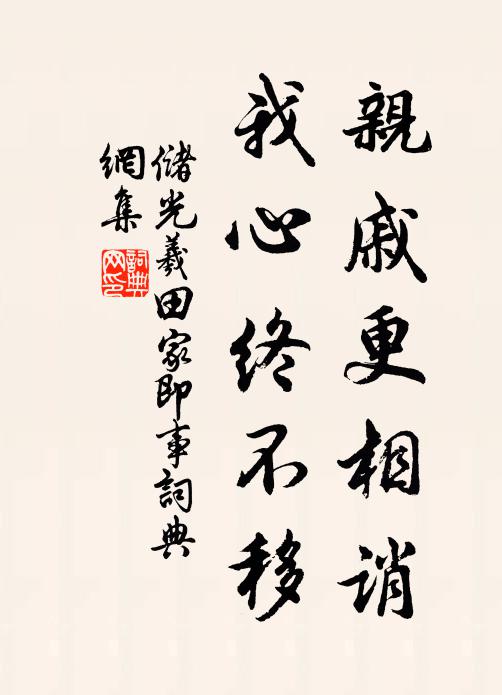 親戚更相誚
我心終不移
儲光羲田家即事詞典
網集
詞典
网印